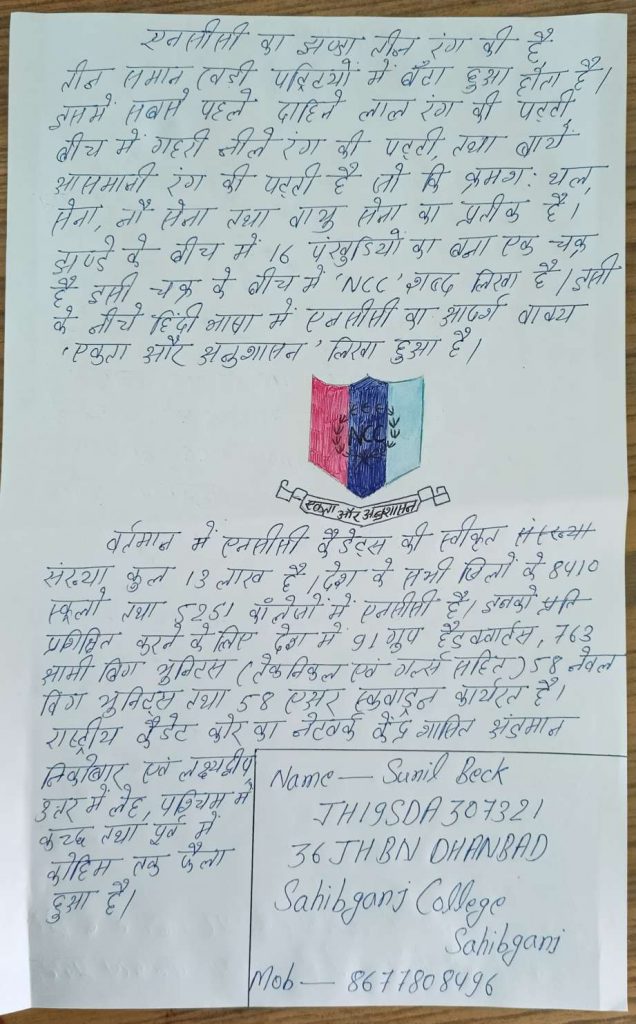 एनसीसी का झण्डा तीन रंग की है,
तीन समान खड़ी पट्टियों में बँटा हुआ होता है।
इसमें सबसे पहले दाहिने लाल रंग की पट्टी,
बीच में गहरी नीले रंग की पट्टी, तथा बायें
आसमानी रंग की पट्टी है जो कि क्रमश: थल,
सेना, नौ सेना तथा वायु सेना का प्रतीक है।
झण्डे के बीच में 16 पंखुडियों का बना एक चक्र
है इसी चक्र के बीच में 'NCC' शब्द लिखा है। इसी
के नीचे हिंदी भाषा में एनसीसी का आदर्श वाक्य
'एकता और अनुशासन' लिखा हुआ है।
NCC
एकता और अनुशासन
वर्तमान में एनसीसी कैडेट्स की स्वीकृत संख्या
संख्या कुल 13 लाख है। देश के सभी जिलों के 8410
स्कूलों तथा 5251 कॉलेजों में एनसीसी है। इनको प्रति
प्रशिक्षित करने के लिए देश में 91 ग्रुप हैडक्वार्टस, 763
आर्मी विंग युनिटस (टेकनिकल एवं गर्ल्स सहित) 58 नेवल
विंग युनिट्स तथा 58 एअर स्कवाड्रन कार्यरत है।
राष्ट्रीय कैडेट कोर का नेटवर्क केंद्र शासित अंडमान
निकोबार एवं लक्ष्यद्वीप
उत्तर में लेह, पश्चिम में
कच्छ तथा पूर्व में
कोहिम तक फैला
हुआ है।
Name — Sunil Beck
JH19SDA307321
36 JH BN DHANBAD
Sahibganj College
Sahibganj
Mob — 8677808496